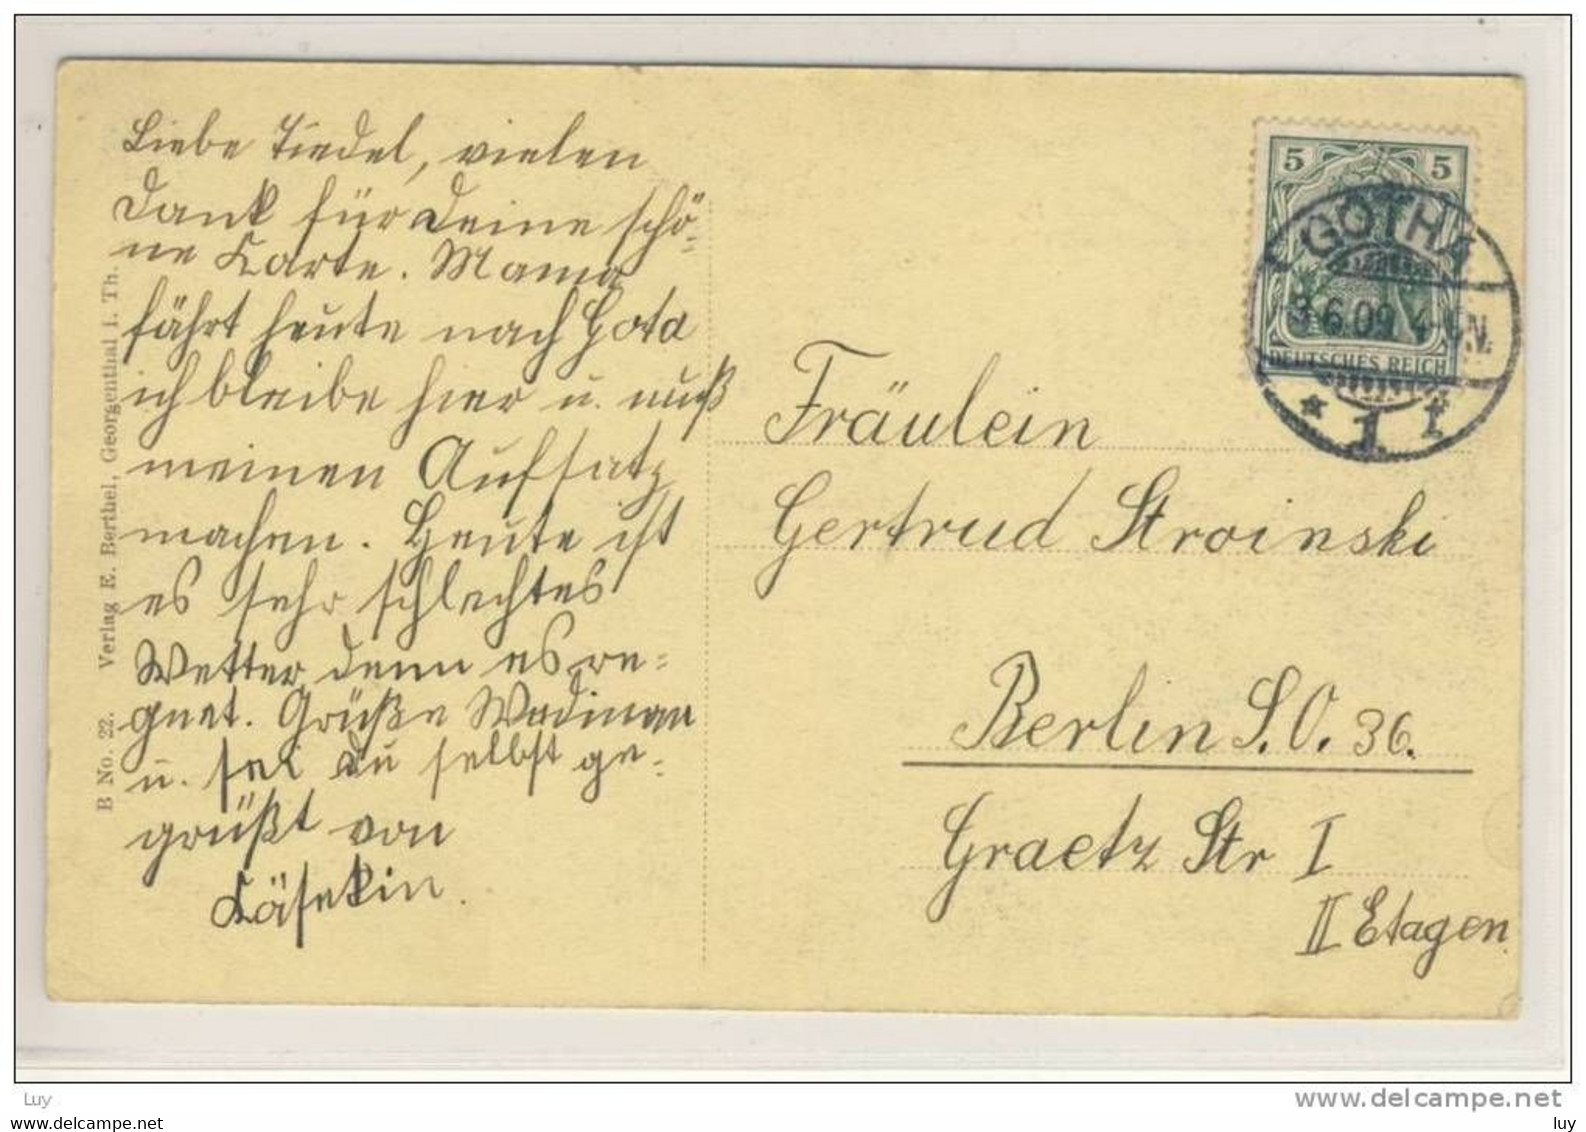 Liebe Tiedel, vielen
Dank für Deine schö-
ne Karte. Mama
fährt heute nach Gota
ich bleibe hier u. muß
meinen Aufsatz
machen. Heute ist
es sehr schlechtes
Wetter, denn es re-
gnet. Grüße
u. sei Du selbst ge-
grüßt von
Käsekin.
B No. 22. Verlag E. Berthel, Georgenthal i. Th.
5 5
DEUTSCHES REICH
GOTHA
3.6.09. 4-5N.
* 1 f
Fräulein
Gertrud Stroinski
Berlin S.O. 36.
Graetz Str I
II Etagen.
Luy
www.delcampe.net
luy